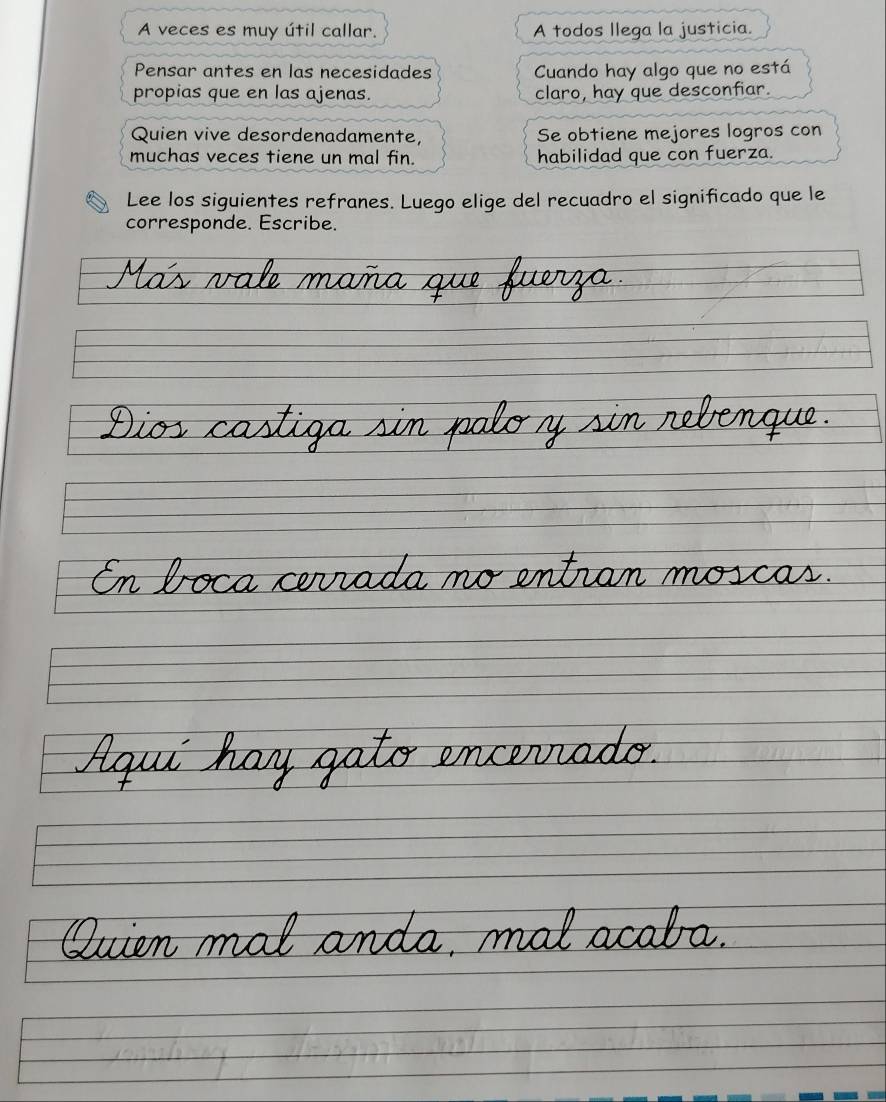 A veces es muy útil callar.
A todos llega la justicia.
Pensar antes en las necesidades
propias que en las ajenas.
Cuando hay algo que no está
claro, hay que desconfiar.
Quien vive desordenadamente,
muchas veces tiene un mal fin.
Se obtiene mejores logros con
habilidad que con fuerza.
Lee los siguientes refranes. Luego elige del recuadro el significado que le
corresponde. Escribe.
Más vale maña que fuerza.
Dios castiga sin palo y sin rebenque.
En boca cerrada no entran moscas.
Aquí hay gato encerrado.
Quien mal anda, mal acaba.